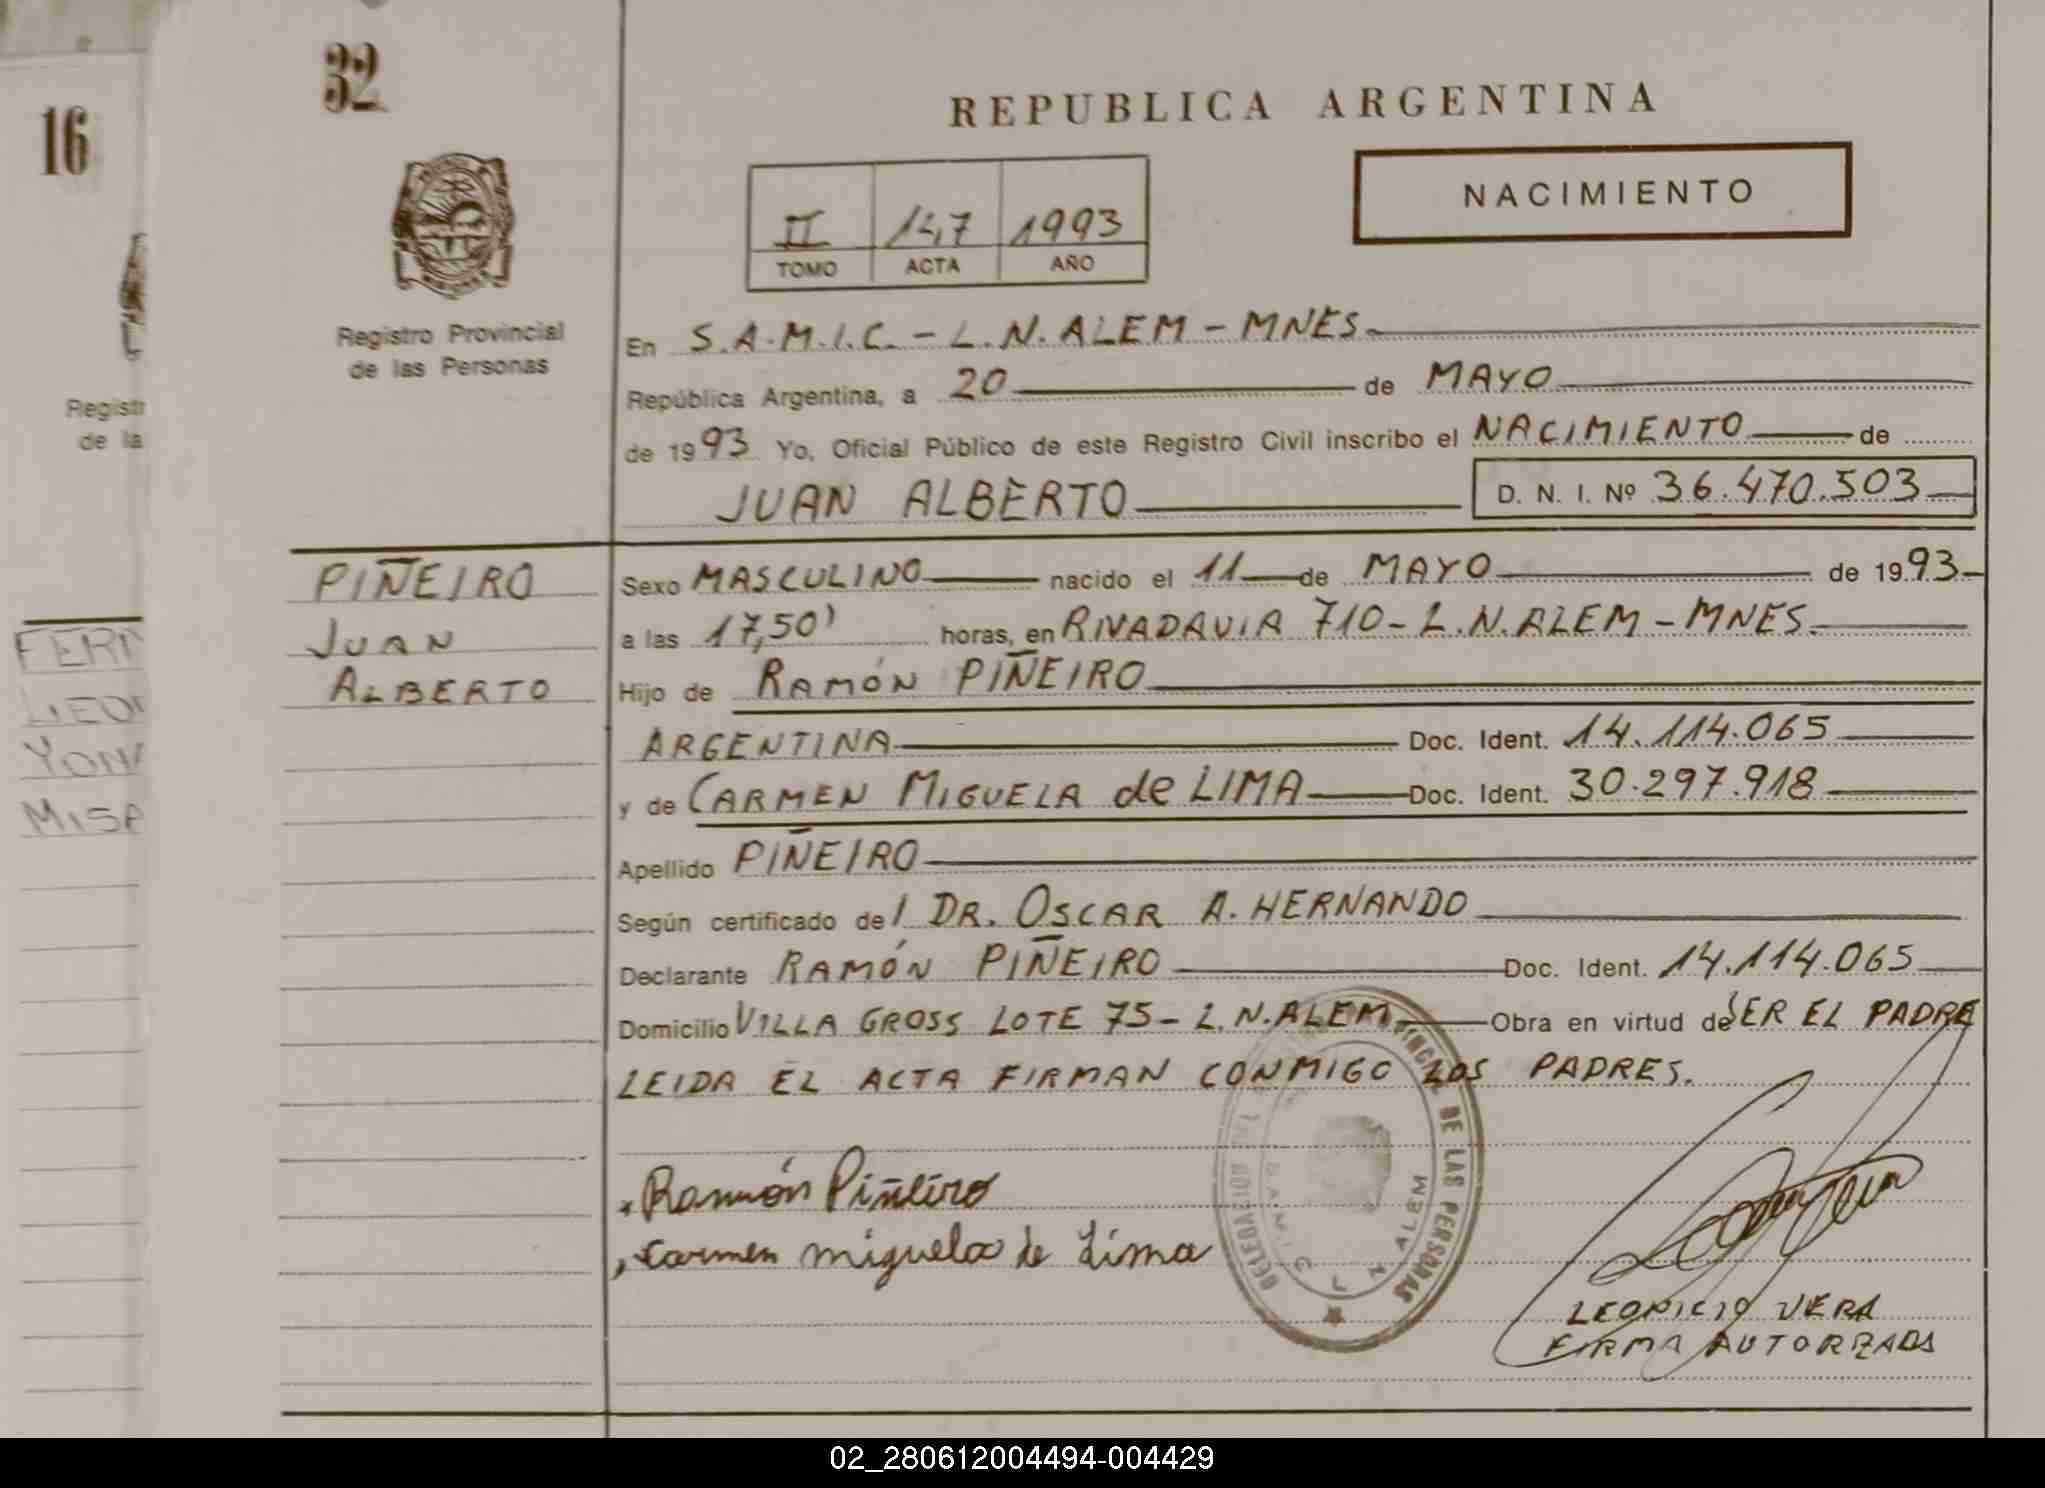 32
16
REPUBLICA ARGENTINA
NACIMIENTO
II 147 1993
TOMO ACTA AÑO
Registro Provincial
de las Personas
Registr
de la
En S.A.M.I.C. - L.N. ALEM - MNES.
República Argentina, a 20 de MAYO
de 1993 Yo, Oficial Público de este Registro Civil inscribo el NACIMIENTO de
JUAN ALBERTO D. N. I. Nº 36.470.503
PIÑEIRO
JUAN
ALBERTO
Sexo MASCULINO nacido el 11 de MAYO de 1993
a las 17,50' horas, en RIVADAVIA 710 - L.N. ALEM - MNES.
Hijo de RAMÓN PIÑEIRO
ARGENTINA Doc. Ident. 14.114.065
y de CARMEN MIGUELA de LIMA Doc. Ident. 30.297.918
Apellido PIÑEIRO
Según certificado del DR. OSCAR A. HERNANDO
Declarante RAMÓN PIÑEIRO Doc. Ident. 14.114.065
Domicilio VILLA GROSS LOTE 75 - L.N. ALEM. Obra en virtud de SER EL PADRE
LEIDA EL ACTA FIRMAN CONMIGO LOS PADRES.
Ramón Piñeiro
Carmen miguela de Lima
DE LAS PERSONAS
L N ALEM
LEONICIO VERA
FIRMA AUTORIZADA
FERN
LEON
YONI
MISA
02_280612004494-004429